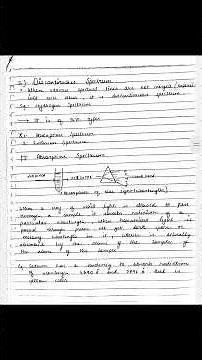 2) Discontinuous Spectrum
* When various spectral lines are not merged
into each other, it is discontinuous spectrum
Eg: Hydrogen Spectrum
→ It is of two types
1. Absorption Spectrum
2. Emission Spectrum
Absorption Spectrum
When a ray of white light is allowed to pass
through a sample it absorbs radiation of a
particular wavelength, when transmitted light is
passed through prism we get dark spaces or
missing wavelength in it, which is actually
absorbed by the atoms of the sample
the atoms of the sample
Eg Sodium has a tendency to absorb radiation
of wavelength 5890 Å and 5896 Å that is
yellow color